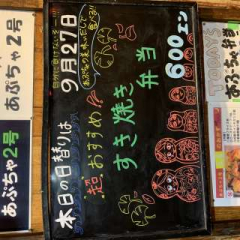 9月27日
本日の日替りは
超おすすめ!!
すき焼き
弁当
600エン
あぷちゃ2号
あぷちゃ2号
TODAY'S
あぷちゃ弁当